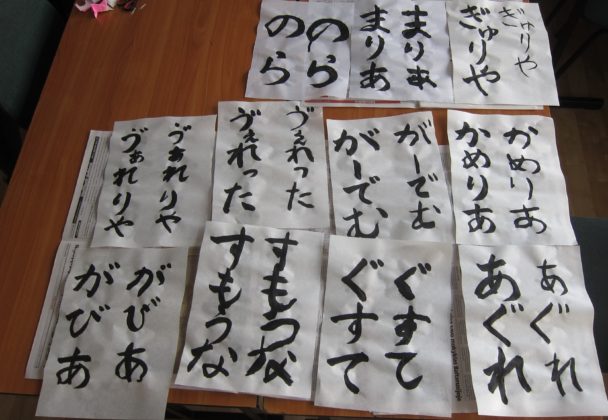 のら
のら
まりあ
まりあ
ぎゅりや
ぎゅりや
ゔぁれりや
ゔぁれりや
ゔぇれった
ゔぇれった
がーでむ
がーでむ
かめりあ
かめりあ
がびあ
がびあ
すもうな
すもうな
ぐすて
ぐすて
あぐれ
あぐれ